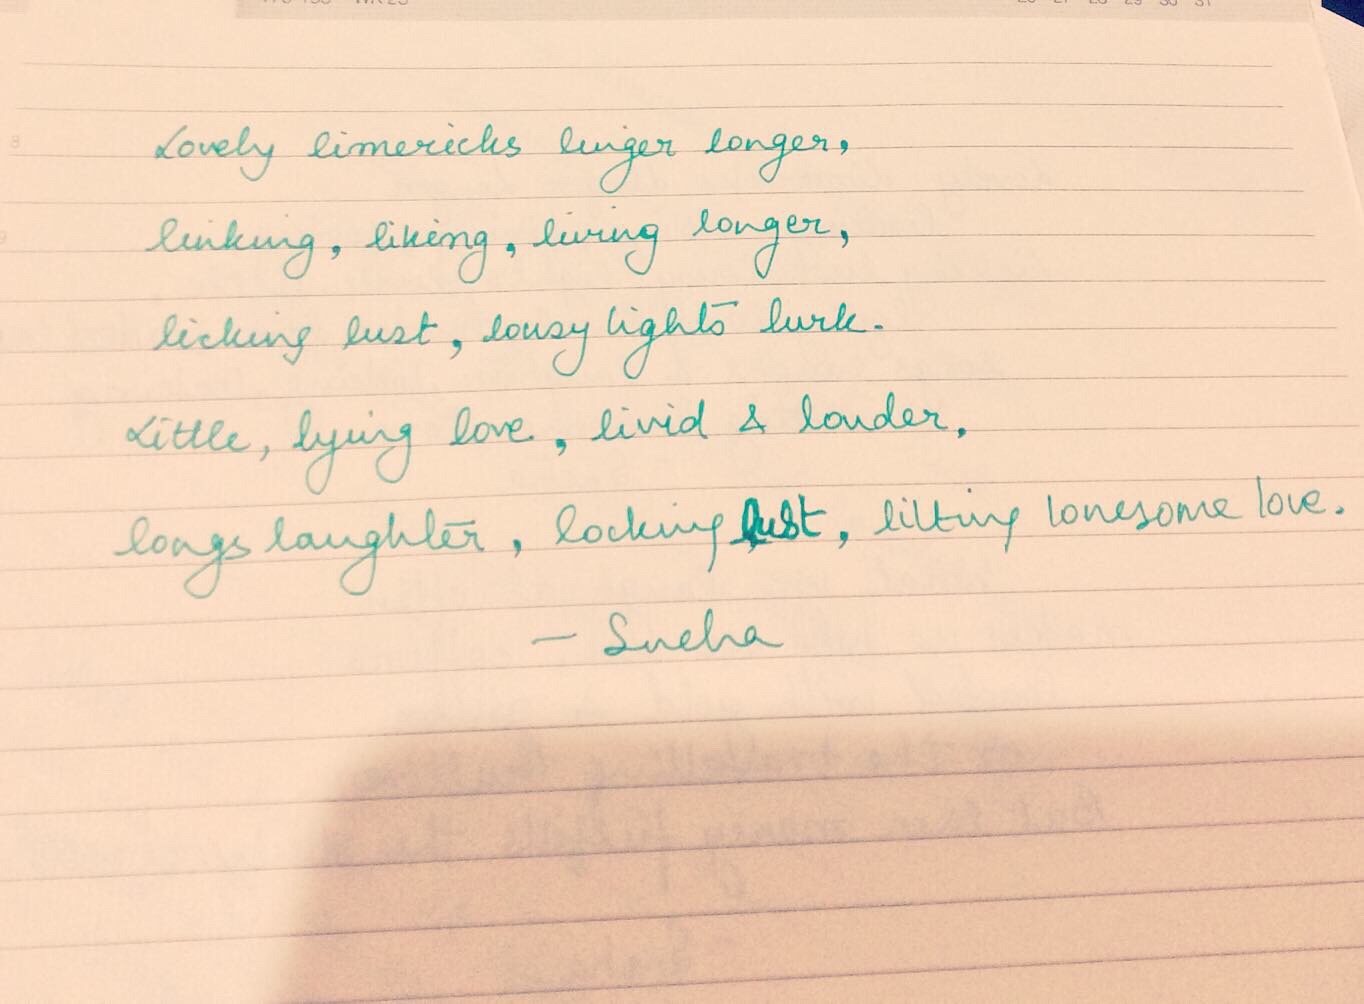 Lovely limericks linger longer,
linking, liking, living longer,
licking lust, lousy lights lurk.
Little, lying love, livid & louder,
longs laughter, locking lust, lilting lonesome love.
- Sneha